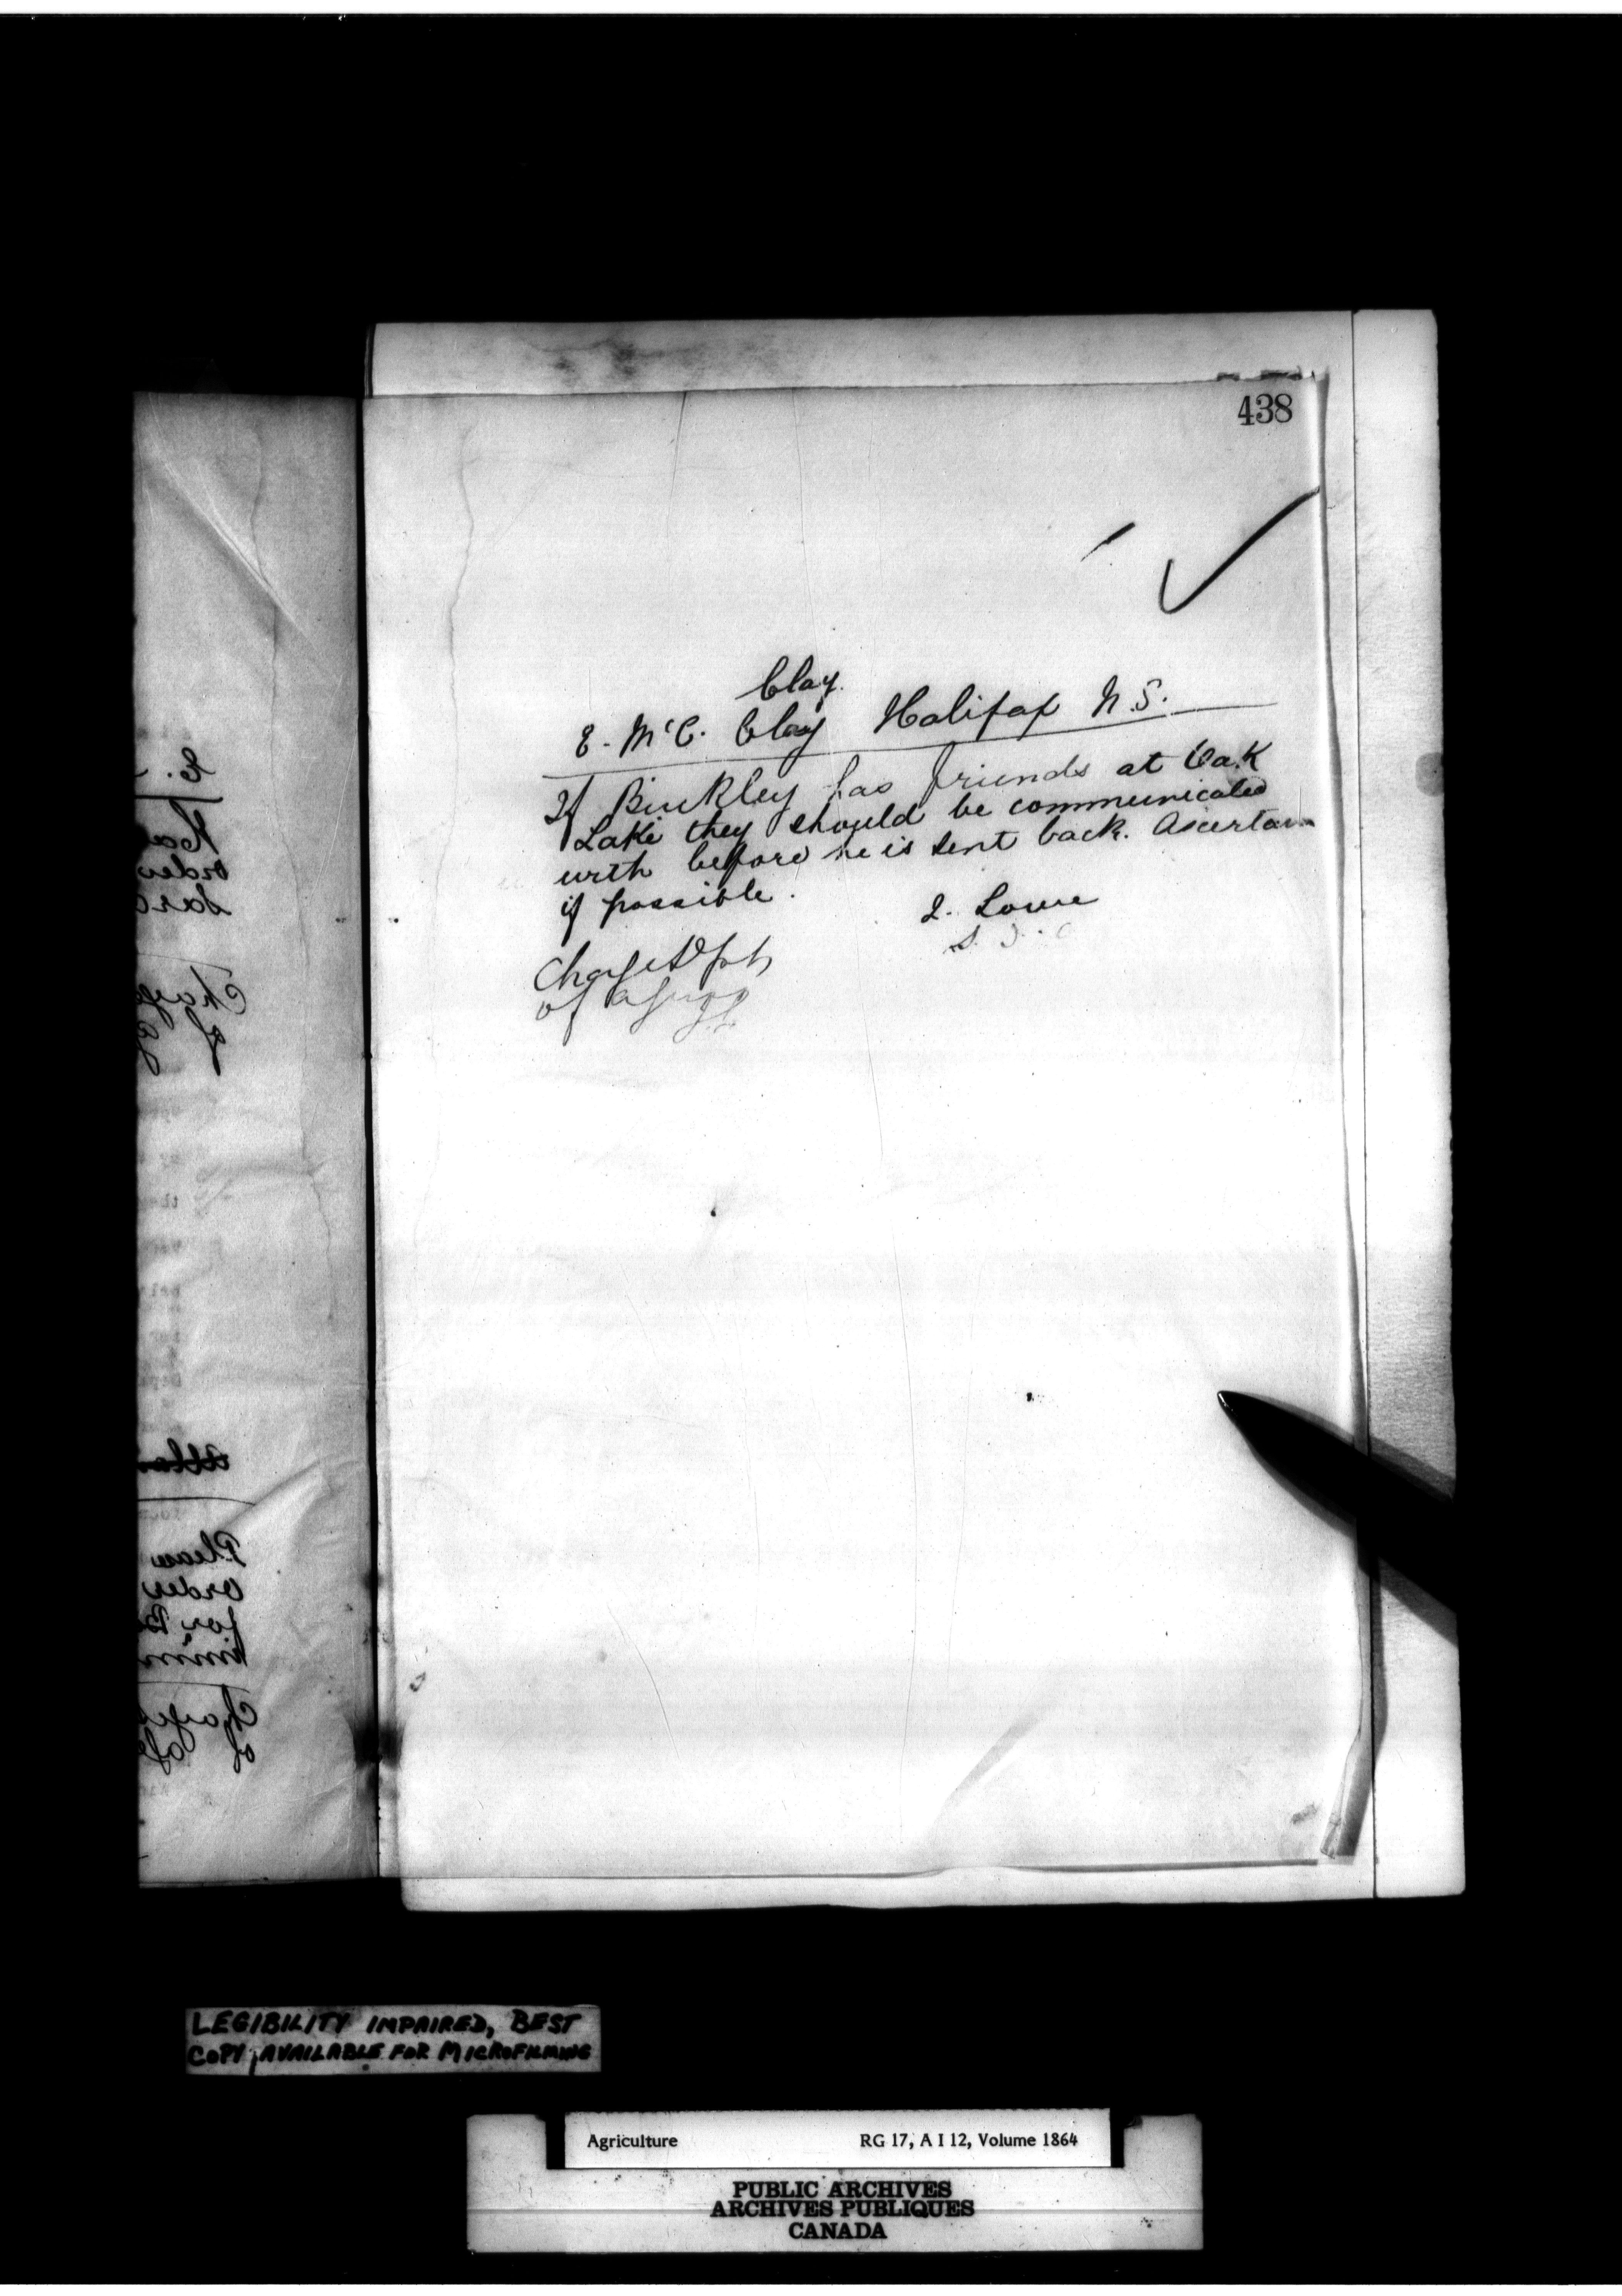 438
Clay.
E. McC. Clay Halifax N.S.
If Binkley has friends at Oak
Lake they should be communicated
with before he is sent back. Ascertain
if possible.
J. Lowe
Charge Dept
of Agr
E.
order
Charge
of
Please
order
for
Charge
of
LEGIBILITY IMPAIRED, BEST
COPY AVAILABLE FOR MICROFILMING
Agriculture RG 17, A I 12, Volume 1864
PUBLIC ARCHIVES
ARCHIVES PUBLIQUES
CANADA